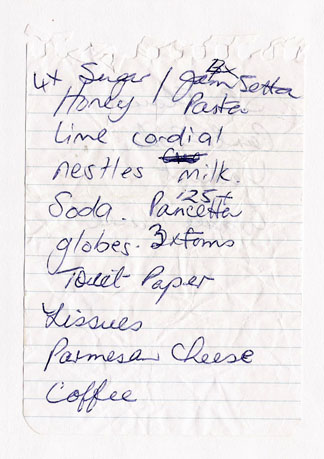 4x Sugar / Jam Setta
Honey Pasta
Lime cordial
nestles milk.
Soda. Pancetta
globes. 3x Toms
Toilet Paper
Tissues
Parmesan Cheese
Coffee